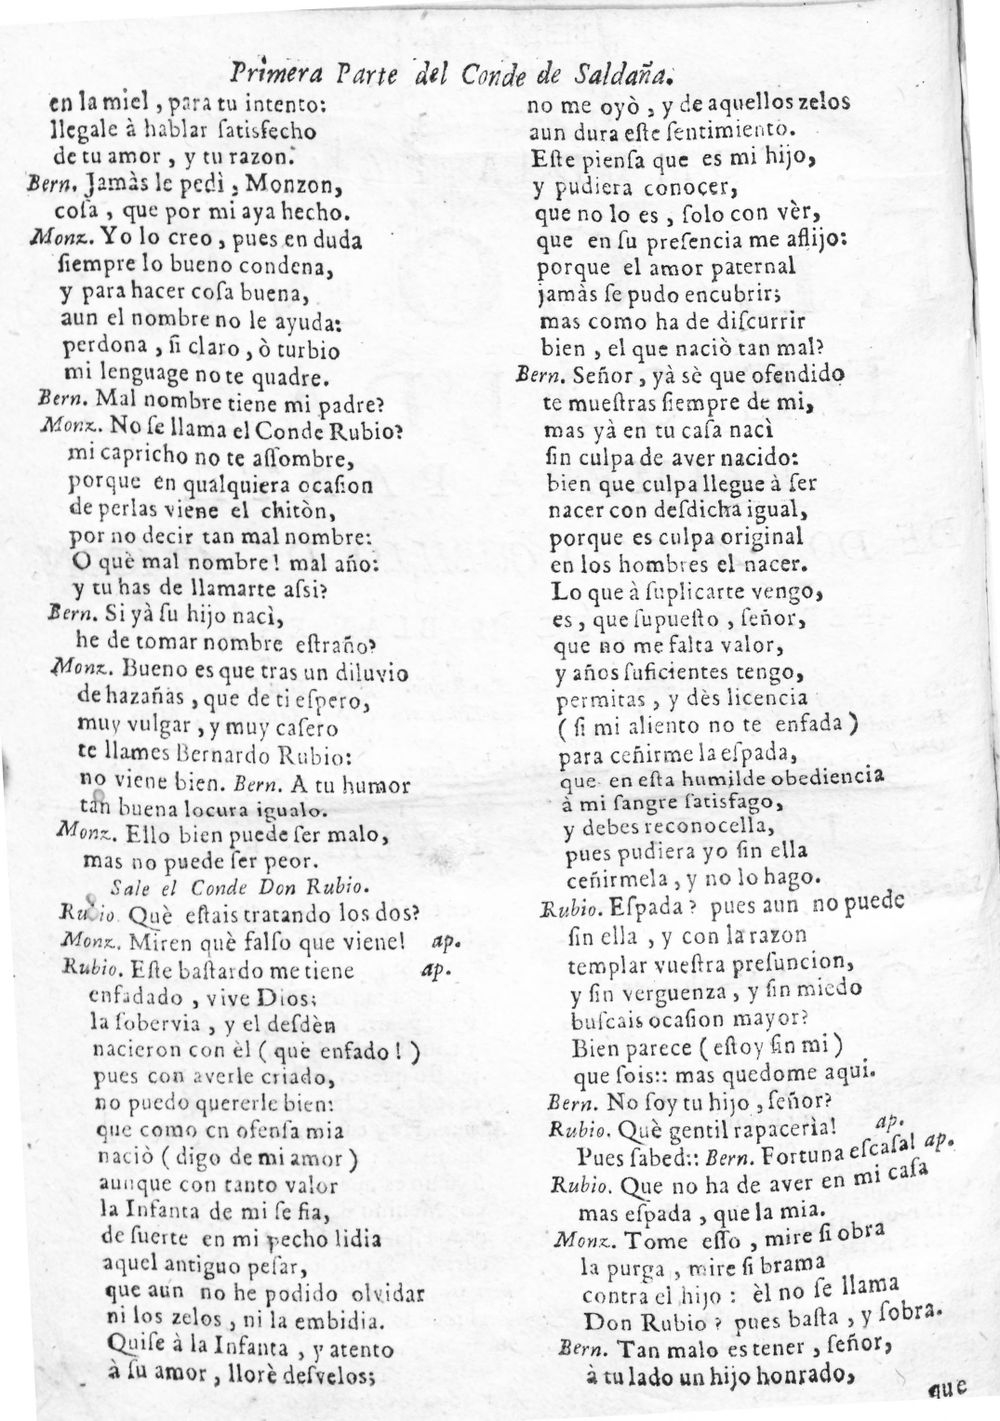 Primera Parte del Conde de Saldaña.
en la miel, para tu intento:
llegale à hablar ſatisfecho
de tu amor, y tu razon.
Bern. Jamàs le pedì, Monzon,
coſa, que por mi aya hecho.
Monz. Yo lo creo, pues en duda
ſiempre lo bueno condena,
y para hacer coſa buena,
aun el nombre no le ayuda:
perdona, ſi claro, ò turbio
mi lenguage no te quadre.
Bern. Mal nombre tiene mi padre?
Monz. No ſe llama el Conde Rubio?
mi capricho no te aſſombre,
porque en qualquiera ocaſion
de perlas viene el chitòn,
por no decir tan mal nombre:
O què mal nombre! mal año:
y tu has de llamarte aſsi?
Bern. Si yà ſu hijo nacì,
he de tomar nombre eſtraño?
Monz. Bueno es que tras un diluvio
de hazañas, que de ti eſpero,
muy vulgar, y muy caſero
te llames Bernardo Rubio:
no viene bien. Bern. A tu humor
tan buena locura igualo.
Monz. Ello bien puede ſer malo,
mas no puede ſer peor.
Sale el Conde Don Rubio.
Rubio. Què eſtais tratando los dos?
Monz. Miren què falſo que viene! ap.
Rubio. Eſte baſtardo me tiene ap.
enfadado, vive Dios;
la ſobervia, y el deſdèn
nacieron con èl (què enfado!)
pues con averle criado,
no puedo quererle bien:
que como en ofenſa mia
naciò (digo de mi amor)
aunque con tanto valor
la Infanta de mi ſe fia,
de ſuerte en mi pecho lidia
aquel antiguo peſar,
que aun no he podido olvidar
ni los zelos, ni la embidia.
Quiſe à la Infanta, y atento
à ſu amor, llorè deſvelos;
no me oyò, y de aquellos zelos
aun dura eſte ſentimiento.
Eſte pienſa que es mi hijo,
y pudiera conocer,
que no lo es, ſolo con vèr,
que en ſu preſencia me aflijo:
porque el amor paternal
jamàs ſe pudo encubrir;
mas como ha de diſcurrir
bien, el que naciò tan mal?
Bern. Señor, yà sè que ofendido
te mueſtras ſiempre de mi,
mas yà en tu caſa nacì
ſin culpa de aver nacido:
bien que culpa llegue à ſer
nacer con deſdicha igual,
porque es culpa original
en los hombres el nacer.
Lo que à ſuplicarte vengo,
es, que ſupueſto, ſeñor,
que no me falta valor,
y años ſuficientes tengo,
permitas, y dès licencia
(ſi mi aliento no te enfada)
para ceñirme la eſpada,
que en eſta humilde obediencia
à mi ſangre ſatisfago,
y debes reconocella,
pues pudiera yo ſin ella
ceñirmela, y no lo hago.
Rubio. Eſpada? pues aun no puede
ſin ella, y con la razon
templar vueſtra preſuncion,
y ſin verguenza, y ſin miedo
buſcais ocaſion mayor?
Bien parece (eſtoy ſin mi)
que ſois:: mas quedome aqui.
Bern. No ſoy tu hijo, ſeñor?
Rubio. Què gentil rapacerìa! ap.
Pues ſabed:: Bern. Fortuna eſcaſa! ap.
Rubio. Que no ha de aver en mi caſa
mas eſpada, que la mia.
Monz. Tome eſſo, mire ſi obra
la purga, mire ſi brama
contra el hijo: èl no ſe llama
Don Rubio? pues baſta, y ſobra.
Bern. Tan malo es tener, ſeñor,
à tu lado un hijo honrado,
que